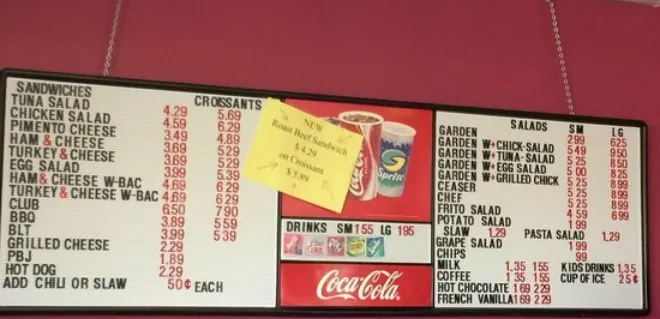 SANDWICHES
CROISSANTS
TUNA SALAD 4.29 5.69
CHICKEN SALAD 4.59 6.29
PIMENTO CHEESE 3.49 4.89
HAM & CHEESE 3.69 5.29
TURKEY & CHEESE 3.69 5.29
EGG SALAD 3.69 5.39
HAM & CHEESE W-BAC 4.69 6.29
TURKEY & CHEESE W-BAC 4.69 6.29
CLUB 6.50 7.90
BBQ 3.89 5.59
BLT 3.99 5.39
GRILLED CHEESE 2.29
PBJ 1.89
HOT DOG 2.29
ADD CHILI OR SLAW 50¢ EACH
NEW
Roast Beef Sandwich
$ 4.29
on Croissant
$ 5.89
Sprite
DRINKS SM 155 LG 195
Coca-Cola
SALADS SM LG
GARDEN 2.99 625
GARDEN W+CHICK-SALAD 5.49 9.50
GARDEN W+TUNA-SALAD 5.25 8.50
GARDEN W+EGG SALAD 5.00 8.25
GARDEN W+GRILLED CHICK 5.25 8.99
CEASER 5.25 8.99
CHEF 5.25 8.99
FRITO SALAD 4.59 6.99
POTATO SALAD 1.99
SLAW 1.29 PASTA SALAD 1.29
GRAPE SALAD 1.99
CHIPS 99
MILK 1.35 155 KIDS DRINKS 1.35
COFFEE 1.35 155 CUP OF ICE 25¢
HOT CHOCOLATE 169 229
FRENCH VANILLA 169 229